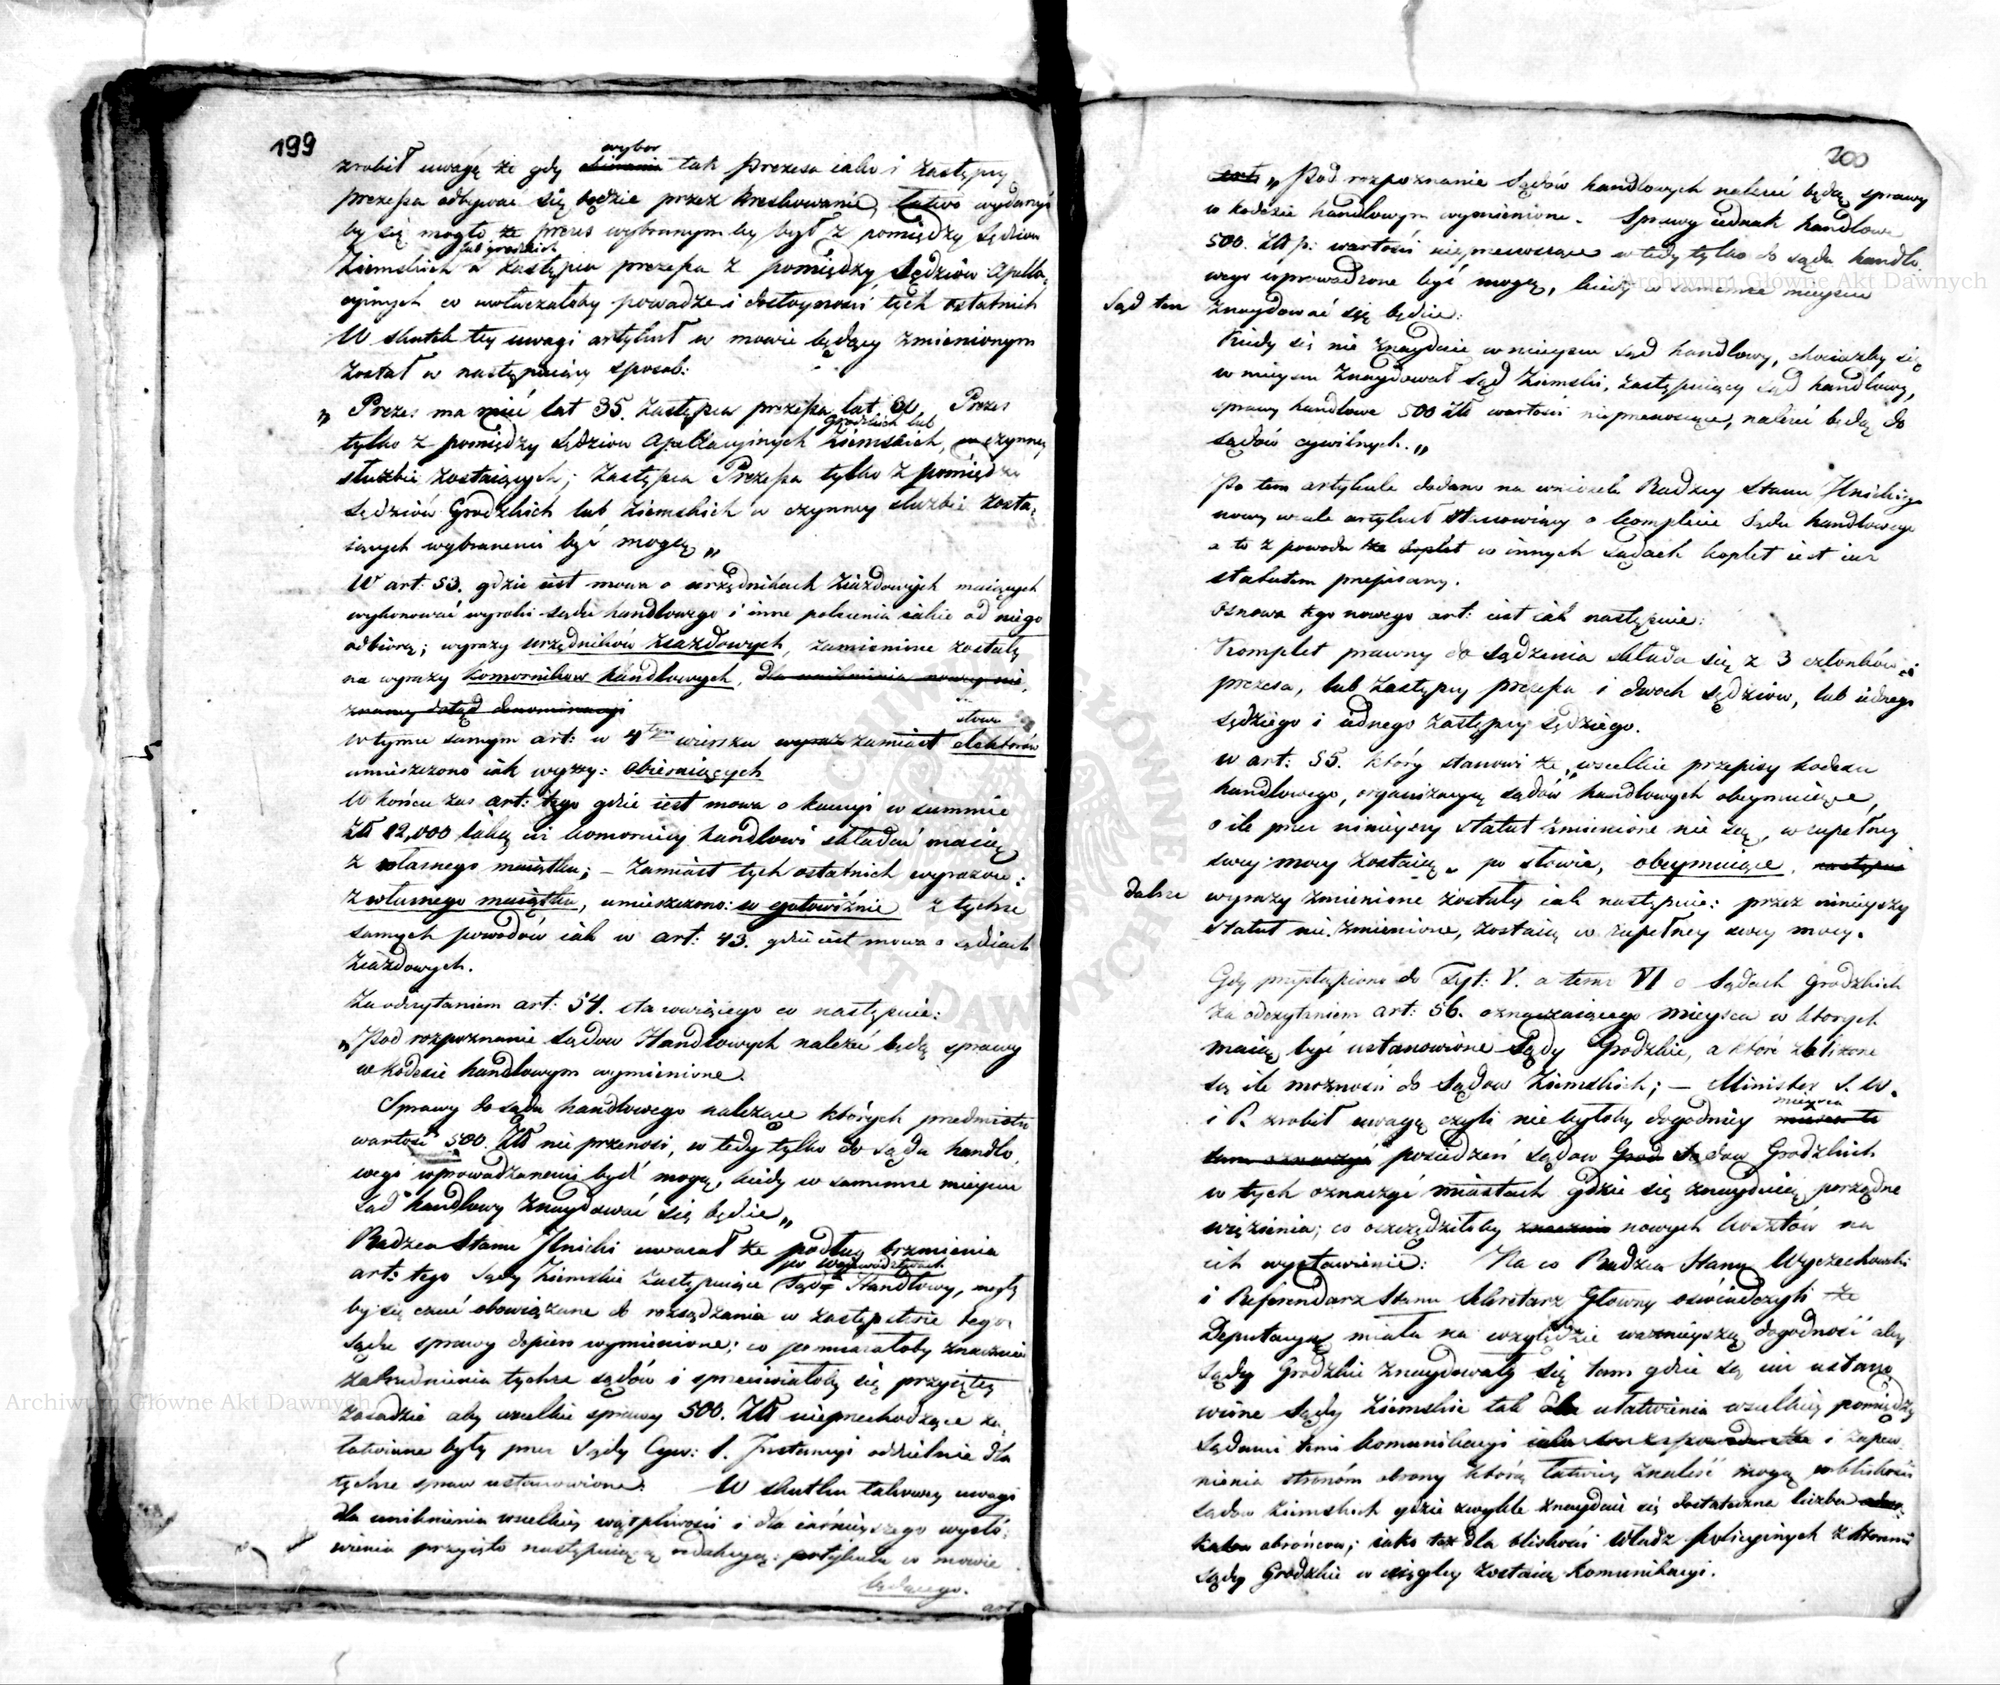 199
wybor
zrobił uwagę że gdy obieranie tak Prezesa iako i Zastępcy
prezesa odbywać się będzie przez kreskowanie, łatwo wydarzyć
by się mogło że prezes wybranym by był z pomiędzy Sędziow
lub grodzkich
Ziemskich a Zastępca prezesa z pomiędzy Sędziów Apella
cyinych co uwłaczałoby powadze i dostoyności tych ostatnich
W skutek tey uwagi artykuł w mowie będący zmienionym
został w następuiący sposob:
„ Prezes ma mieć lat 35. Zastępca prezesa lat 30. Prezes
Grodzkich lub
tylko z pomiędzy Sędziow Apellacyinych Ziemskich, w czynney
służbie zostaiących; Zastępca Prezesa tylko z pomiędzy
Sędziów Grodzkich lub Ziemskich w czynney służbie zosta,
iących wybranemi być mogą „
W art: 53. gdzie iest mowa o urzędnikach Ziazdowych maiących
wykonować wyroki sądu handlowego i inne polecenia iakie od niego
odbiorą; wyrazy urzędników ziazdowych, zamienione zostały
na wyrazy Komorników handlowych, dla uniknienia nowey nie
znaney dotąd denominacyi
słowa
W tymże samym art: w 4tym wierszu wyraz zamiast elektorów
umieszczono iak wyzey: obieraiących
W końcu zas art: tego gdzie iest mowa o kaucyi w summie
Zł 12,000 iaką ci komornicy handlowi składać maią
z własnego maiątku; – Zamiast tych ostatnich wyrazow:
z własnego maiątku, umieszczono: w gotowiźnie z tychże
samych powodów iak w art: 43. gdzie iest mowa o sędziach
Ziazdowych.
Za odczytaniem art: 54. stanowiącego co następuie:
„Pod rozpoznanie Sądow Handlowych należeć będą sprawy
w kodexie handlowym wymienione.
Sprawy do sądu handlowego należące których przedmiotu
wartość 500. Zł nie przenosi, w tedy tylko do sądu handlo,
wego wprowadzanemi być mogą, kiedy w samemże mieyscu
sad handlowy znaydować się będzie „
Radzca Stanu Ilnicki uważał że podług brzmienia
po woiewództwach
art: tego Sądy Ziemskie zastępuiące Sądy Handlowy, mogły
by się czuć obowiązane do rozsądzania w zastępstwie tego
Sądu sprawy dopiero wymienione; co pomnażałoby znacznie
zatrudnienia tychże sądów i sprzeciwiałoby się przyiętey
zasadzie aby wszelkie sprawy 500. Zł nieprzechodzące za,
łatwiane były przez Sądy Cyw: I. Instancyi oddzielnie dla
tychże spraw ustanowione. W skutku takowey uwagi
dla uniknienia wszelkiey wątpliwości i dla iaśnieyszego wysło,
wienia przyięto następuiącą redakcyą: artykułu w mowie
będącego.
art
200
art: „ Pod rozpoznanie Sądów handlowych należeć będą sprawy
w kodexie handlowym wymienione. Sprawy iednak handlowe
500. Zł p: wartości nieprzenoszące w tedy tylko do sądu handlo,
wego wprowadzone być mogą, kiedy w samemże mieyscu
Sąd ten znaydować się będzie:
Kiedy się nie znayduie w mieyscu sąd handlowy, chociażby się
w mieyscu znaydował sąd Ziemski, zastępuiący sąd handlowy,
sprawy handlowe 500 Zł wartości nieprzenoszące, należeć będą do
sądów cywilnych. „
Po tem artykule dodano na wniosek Radzcy Stanu Ilnickiego
nowy wcale artykuł stanowiący o komplecie Sądu handlowego
a to z powodu że koplet w innych sądach koplet iest iuż
statutem przepisany.
Osnowa tego nowego art: iest iak następuie:
Komplet prawny do sądzenia składa się z 3 członków i
prezesa, lub zastępcy prezesa i dwoch sędziow, lub iednego
sędziego i iednego zastępcy sędziego.
W art: 55. który stanowi że „ wszelkie przepisy kodexu
handlowego, organizacyą sądów handlowych obeymuiące,
o ile przez ninieyszy statut zmienione nie są, w zupełney
swey mocy zostaią „ po słowie, obeymuiące, następne
dalsze wyrazy zmienione zostały iak następuie: przez ninieyszy
Statut nie zmienione, zostaią w zupełney swey mocy.
Gdy przystąpiono do Tyt: V. a teraz VI o Sądach Grodzkich
za odczytaniem art: 56. oznaczaiącego mieysca w których
maią być ustanowione Sądy Grodzkie, a które zbliżone
są ile możności do Sądow Ziemskich; – Minister S. W.
mieysca
i P. zrobił uwagę czyli nie byłoby dogodniey
posiedzeń sądow Grod Sądow Grodzkich
w tych oznaczyć miastach gdzie się znayduią porządne
więzienia; co oszczędziłoby znacznie nowych kosztów na
ich wystawienie: Na co Radzca Stanu Wyczechowski
i Referendarz Stanu Sekretarz Głowny oświadczyli że
Deputacya miała na względzie ważnieyszą dogodność aby
Sądy Grodzkie znaydowały się tam gdzie są iuż ustano
wione Sądy Ziemskie tak dla ułatwienia wszelkiey pomiędzy
Sądami temi komunikacyi i zapew
nienia stronóm obrony którą łatwiey znaleść mogą w bliskości
sądow Ziemskich gdzie zwykle znayduie się dostateczna liczba
obrońcow; iako też dla bliskości Władz policyinych z któremi
Sądy Grodzkie w ciągłey zostaią komunikacyi.
Archiwum Główne Akt Dawnych
Archiwum Główne Akt Dawnych